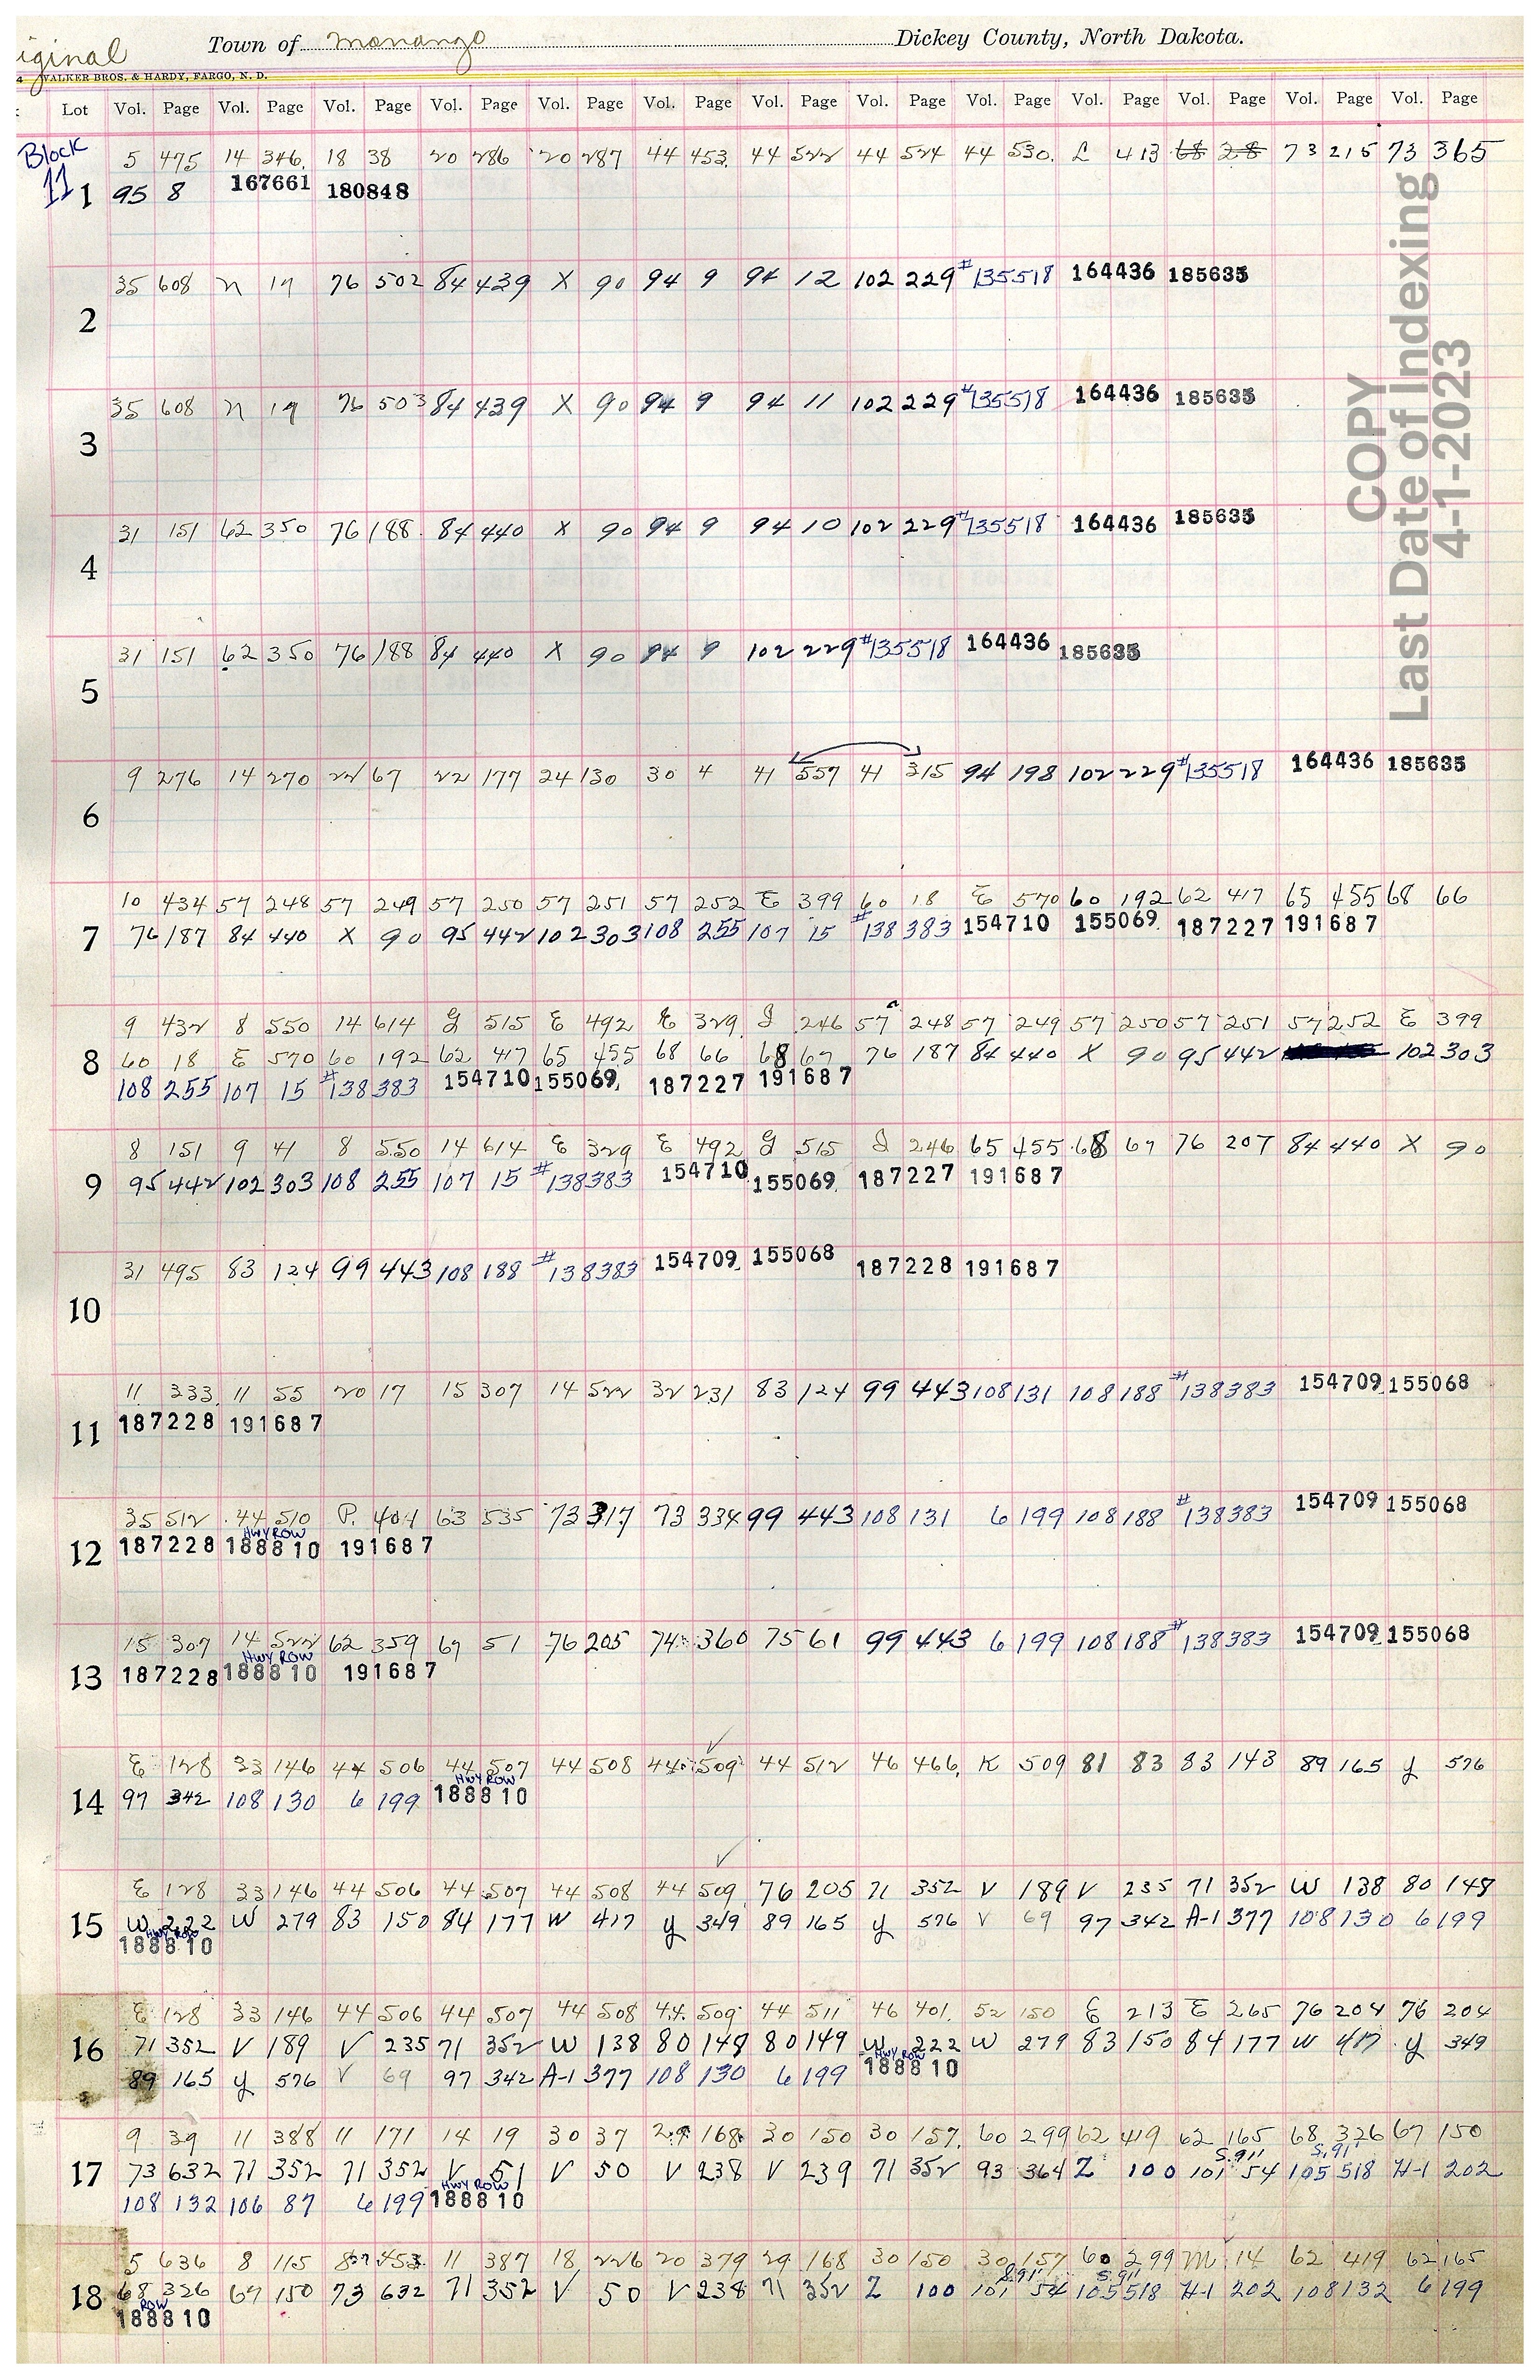 iginal Town of Monango Dickey County, North Dakota.
4 WALKER BROS. & HARDY, FARGO, N. D.
Lot Vol. Page Vol. Page Vol. Page Vol. Page Vol. Page Vol. Page Vol. Page Vol. Page Vol. Page Vol. Page Vol. Page Vol. Page Vol. Page
Block 11
5 475 14 346 18 38 20 286 20 287 44 453 44 522 44 524 44 530 L 413 68 28 73 215 73 365
1 95 8 167661 180848
35 608 N 19 76 502 84 439 X 90 94 9 94 12 102 229 #135518 164436 185635
2
35 608 N 19 76 503 84 439 X 90 94 9 94 11 102 229 #135518 164436 185635
3
31 151 62 350 76 188 84 440 X 90 94 9 94 10 102 229 #135518 164436 185635
4
31 151 62 350 76 188 84 440 X 90 94 9 102 229 #135518 164436 185635
5
9 276 14 270 22 67 22 177 24 130 30 4 41 557 41 315 94 198 102 229 #135518 164436 185635
6
10 434 57 248 57 249 57 250 57 251 57 252 E 399 60 18 E 570 60 192 62 417 65 455 68 66
7 76 187 84 440 X 90 95 442 102 303 108 255 107 15 #138383 154710 155069 187227 191687
9 432 8 550 14 614 G 515 E 492 E 329 J 246 57 248 57 249 57 250 57 251 57 252 E 399
8 60 18 E 570 60 192 62 417 65 455 68 66 68 67 76 187 84 440 X 90 95 442 102 303
108 255 107 15 #138383 154710 155069 187227 191687
8 151 9 41 8 550 14 614 E 329 E 492 G 515 J 246 65 455 68 67 76 207 84 440 X 90
9 95 442 102 303 108 255 107 15 #138383 154710 155069 187227 191687
31 495 83 124 99 443 108 188 #138383 154709 155068 187228 191687
10
11 333 11 55 20 17 15 307 14 522 32 231 83 124 99 443 108 131 108 188 #138383 154709 155068
11 187228 191687
35 512 44 510 P. 404 63 535 73 317 73 334 99 443 108 131 6 199 108 188 #138383 154709 155068
HWY ROW
12 187228 188810 191687
15 307 14 522 62 359 67 51 76 205 74 360 75 61 99 443 6 199 108 188 #138383 154709 155068
HWY ROW
13 187228 188810 191687
E 128 33 146 44 506 44 507 44 508 44 509 44 512 46 466 K 509 81 83 83 143 89 165 Y 576
HWY ROW
14 97 342 108 130 6 199 188810
E 128 33 146 44 506 44 507 44 508 44 509 76 205 71 352 V 189 V 235 71 352 W 138 80 148
15 W 222 W 279 83 150 84 177 W 417 Y 349 89 165 Y 576 V 69 97 342 A-1 377 108 130 6 199
HWY ROW
188810
E 128 33 146 44 506 44 507 44 508 44 509 44 511 46 401 52 150 E 213 E 265 76 204 76 204
16 71 352 V 189 V 235 71 352 W 138 80 148 80 149 W 222 W 279 83 150 84 177 W 417 Y 349
HWY ROW
89 165 Y 576 V 69 97 342 A-1 377 108 130 6 199 188810
9 39 11 388 11 171 14 19 30 37 29 168 30 150 30 157 60 299 62 419 62 165 68 326 67 150
S.911 S.91'
17 73 632 71 352 71 352 V 51 V 50 V 238 V 239 71 352 93 364 Z 100 101 54 105 518 H-1 202
HWY ROW
108 132 106 87 6 199 188810
5 636 8 115 8 453 11 387 18 226 20 379 29 168 30 150 30 157 60 299 M 14 62 419 62 165
S.911 S.911
18 68 326 67 150 73 632 71 352 V 50 V 238 71 352 Z 100 101 54 105 518 H-1 202 108 132 6 199
ROW
188810
COPY
Last Date of Indexing
4-1-2023